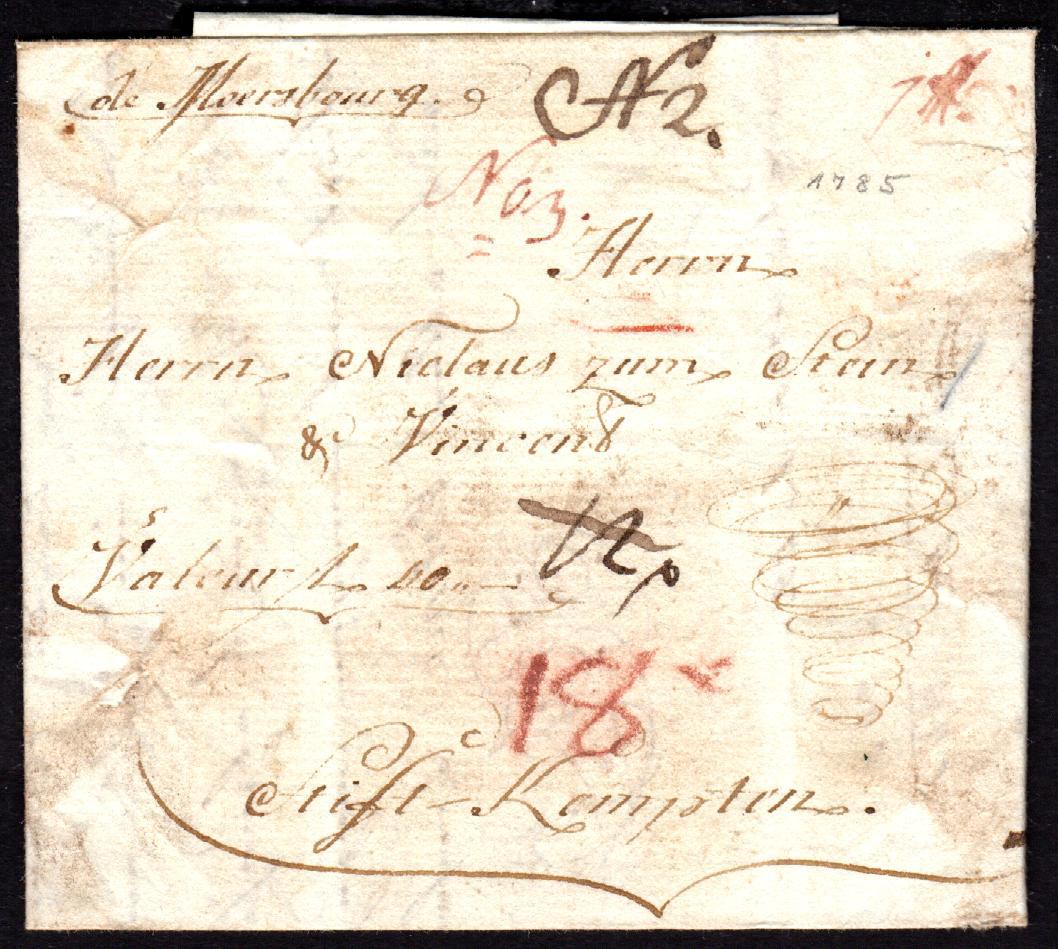 de Moersbourg.
N2.
1785
No 3
Herrn
Herrn Niclaus zum Stein
& Vincent
Valeur f 40
18 x
Stift-Kempten.